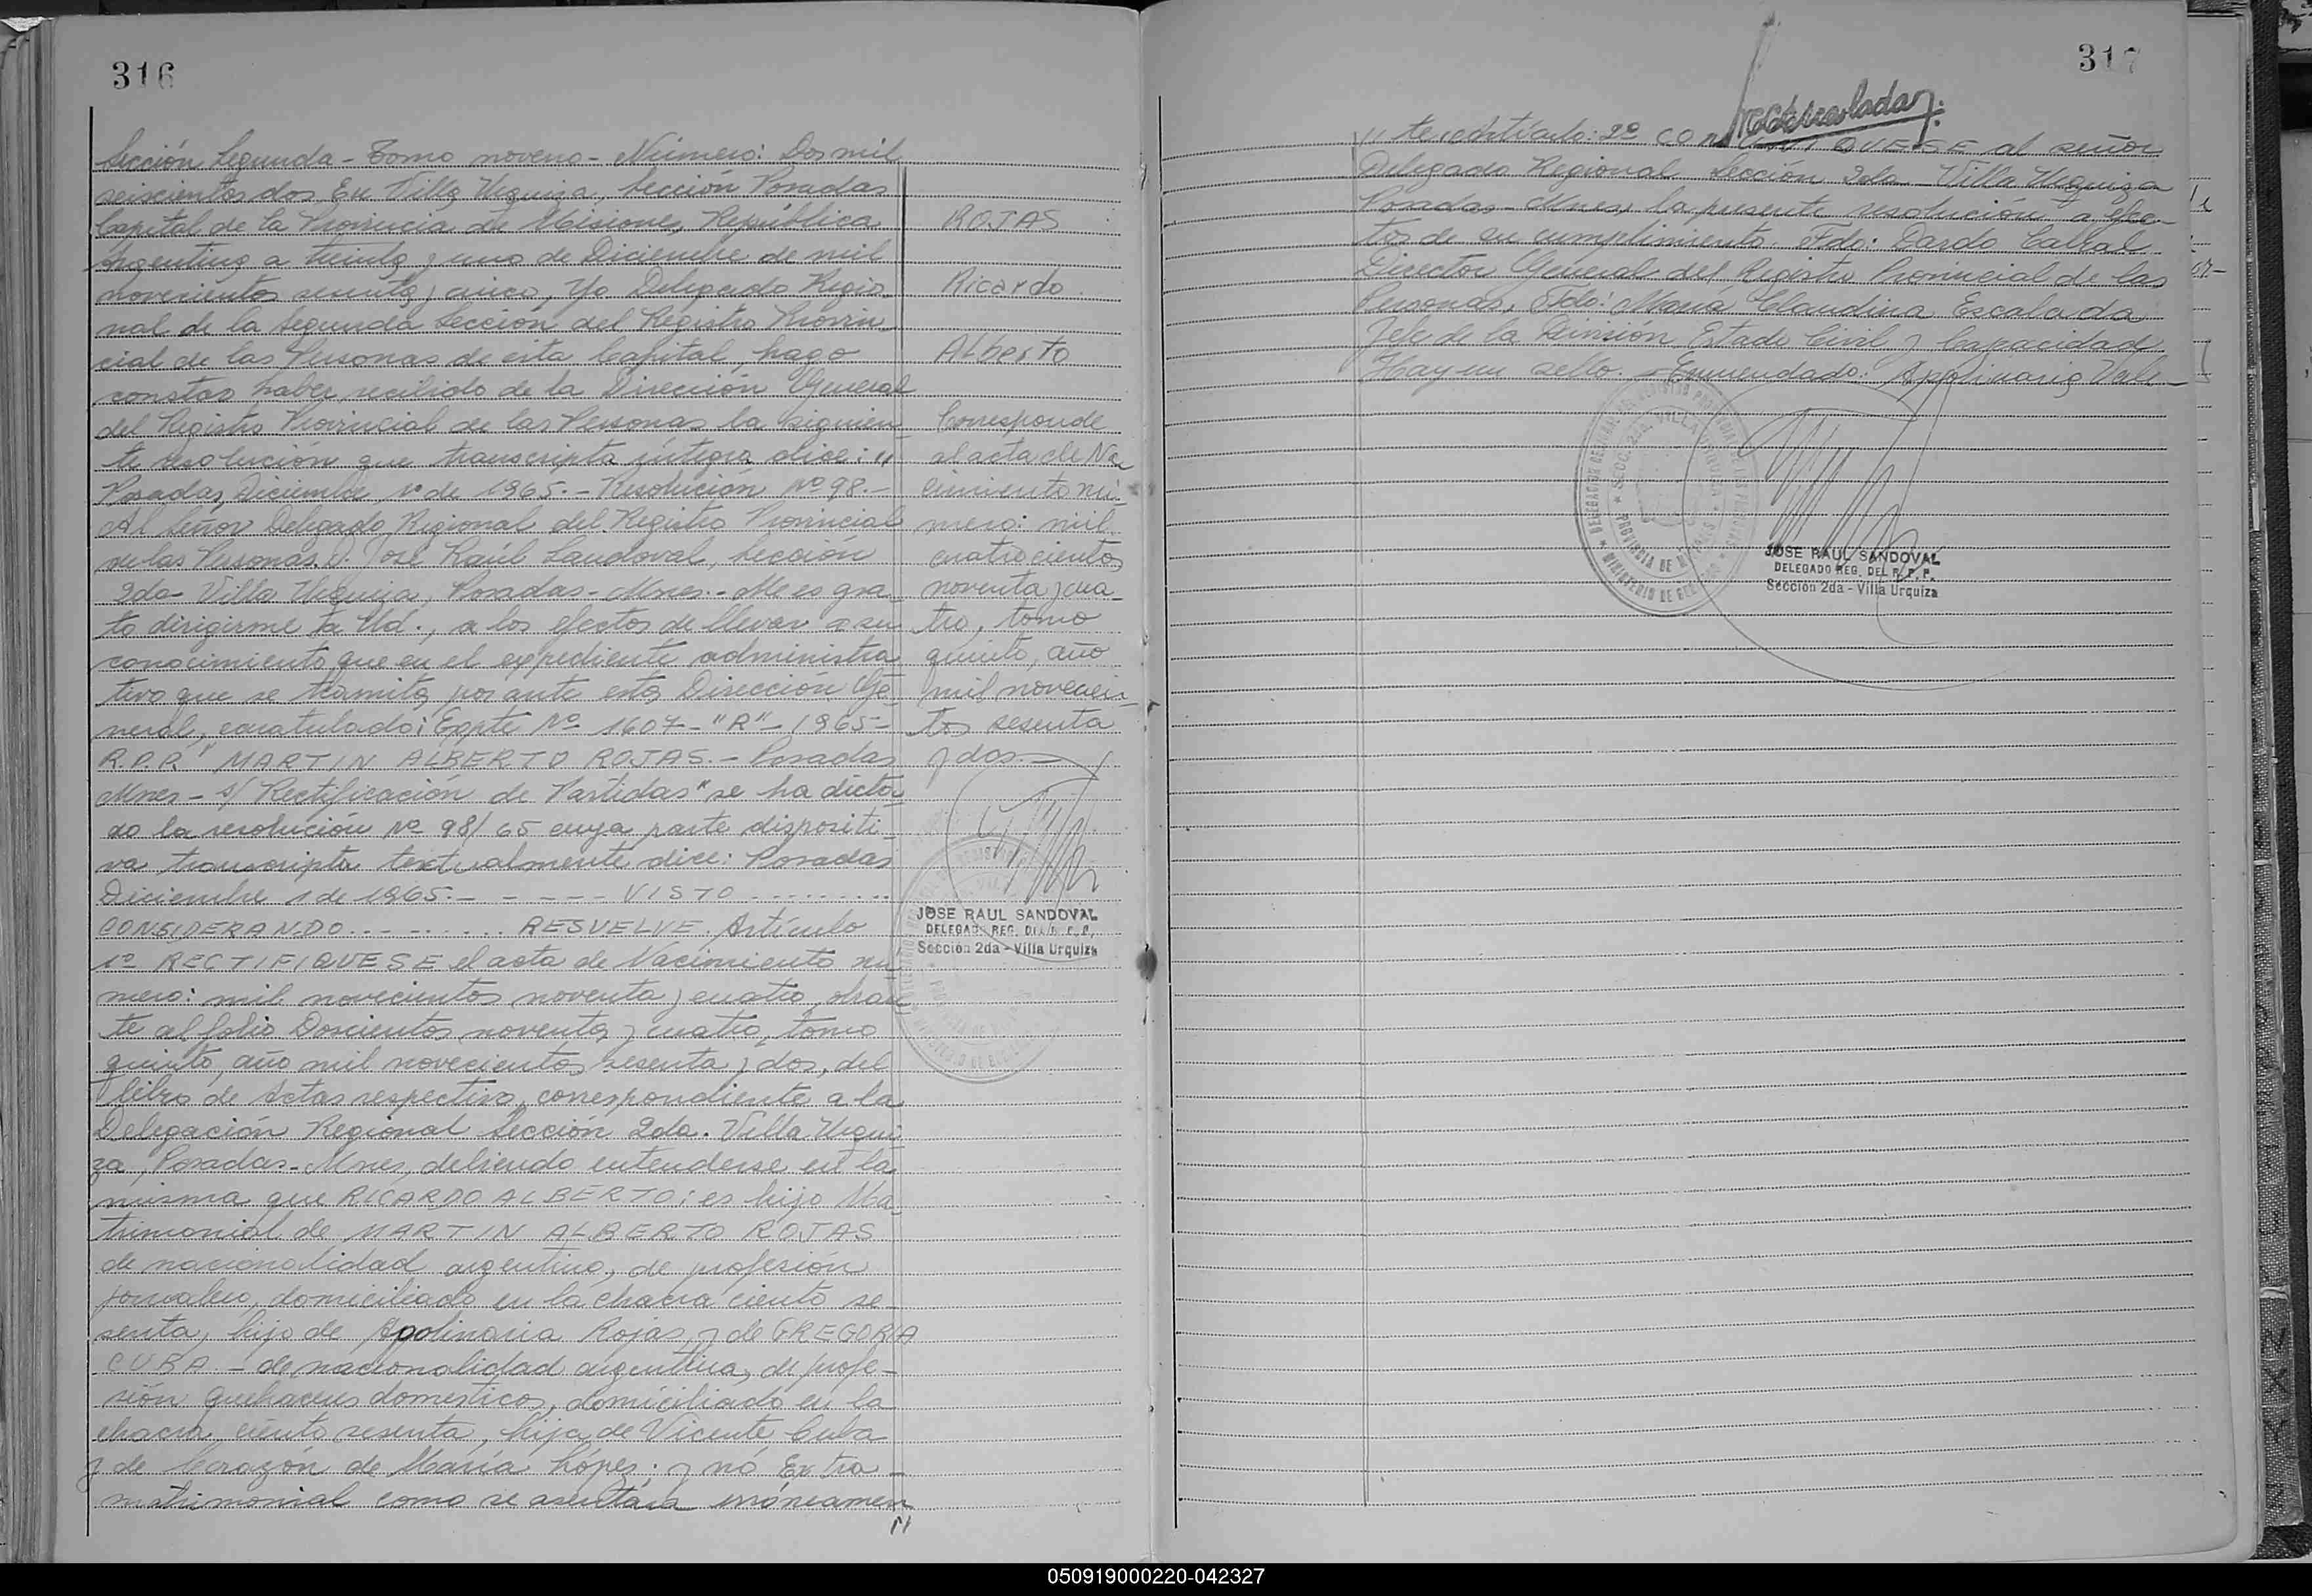 316
Sección Segunda - Tomo noveno - Número: Dos mil
seiscientos dos En Villa Urquiza, Sección Posadas
Capital de la Provincia de Misiones, República
Argentina a treinta y uno de Diciembre de mil
novecientos sesenta y cinco, Yo Delegado Regio
nal de la Segunda Sección del Registro Provin
cial de las Personas de esta Capital, hago
constar haber recibido de la Dirección General
del Registro Provincial de las Personas la siguien
te resolución que transcripta íntegra dice: "
Posadas, Diciembre 1º de 1965.- Resolución Nº 98.-
Al Señor Delegado Regional del Registro Provincial
de las Personas. D. José Raúl Sandoval, Sección
2da- Villa Urquiza, Posadas - Mnes.- Me es gra
to dirigirme a Ud., a los efectos de llevar a su
conocimiento que en el expediente administra
tivo que se tramita por ante esta Dirección Ge
neral, caratulado: Expte Nº 1607 - "R" - 1965 -
R.P.P. " MARTIN ALBERTO ROJAS. - Posadas
Mnes - s/ Rectificación de Partidas" se ha dicta
do la resolución Nº 98/65 cuya parte dispositi
va transcripta textualmente dice: Posadas
Diciembre 1 de 1965.- - - - - VISTO .........
CONSIDERANDO......... RESUELVE. Artículo
1º RECTIFIQUESE el acta de Nacimiento nú
mero: mil novecientos noventa y cuatro, obran
te al folio Doscientos noventa y cuatro, tomo
quinto, año mil novecientos sesenta y dos, del
libro de Actas respectivo, correspondiente a la
Delegación Regional Sección 2da. Villa Urqui
za, Posadas - Mnes, debiendo entenderse en la
misma que RICARDO ALBERTO: es hijo Ma
trimonial de MARTIN ALBERTO ROJAS
de nacionalidad argentino, de profesión
jornalero, domiciliado en la chacra ciento se
senta, hijo de Apolinaria Rojas, y de GREGORIA
CUBA - de nacionalidad argentina, de profe-
sión quehaceres domesticos, domiciliado en la
chacra ciento sesenta, hija de Vicente Cuba
y de Corazón de María López; y nó Extra-
matrimonial como se asentára erróneamen
"
ROJAS
Ricardo
Alberto
Corresponde
al acta de Na
cimiento nú-
mero: mil
cuatrocientos
noventa y cua-
tro, tomo
quinto, año
mil novecien-
tos sesenta
y dos.-
JOSE RAUL SANDOVAL
DELEGADO REG. DEL R. P. P.
Sección 2da - Villa Urquiza
317
" te. Artículo: 2º COMUNIQUESE al señor
Delegado Regional Sección 2da - Villa Urquiza
Posadas - Mnes, la presente resolución a efec-
tos de su cumplimiento. Fdo: Dardo Cabral
Director General del Registro Provincial de las
Personas, Fdo: María Claudina Escalada
Jefe de la División Estado Civil y Capacidad
Hay un sello. - Enmendado: Apolinaria Vale-
JOSE RAUL SANDOVAL
DELEGADO REG. DEL R. P. P.
Sección 2da - Villa Urquiza
050919000220-042327